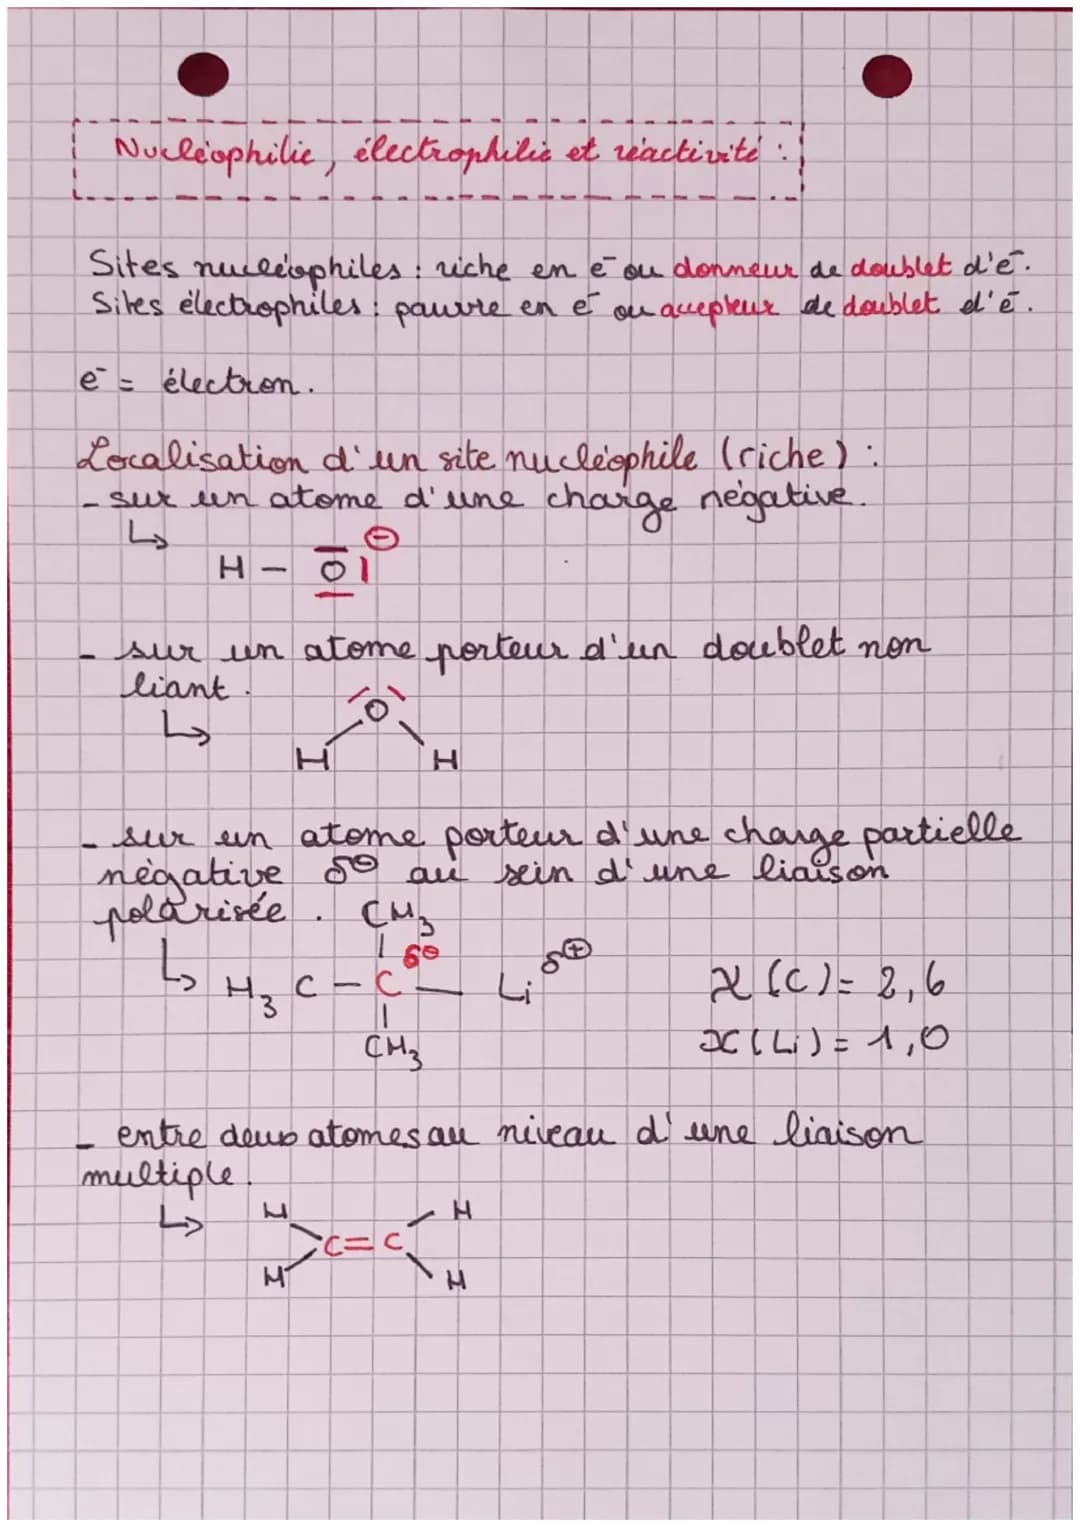 Nucléophilie, électrophilie et réactivité :
Sites nucléophiles : riche en e⁻ ou donneur de doublet d'e⁻.
Sites électrophiles : pauvre en e⁻ ou accepteur de doublet d'e⁻.
e⁻ = électron.
Localisation d'un site nucléophile (riche) :
- sur un atome d'une charge négative.
↳ H – O| ⊖
- sur un atome porteur d'un doublet non
liant.
↳ O
H H
- sur un atome porteur d'une charge partielle
négative δ⊖ au sein d'une liaison
polarisée. CH₃
↳ H₃C – C δ⊖ — Li δ⊕ χ(C) = 2,6
CH₃ χ(Li) = 1,0
- entre deux atomes au niveau d'une liaison
multiple.
↳ H H
C = C
H H